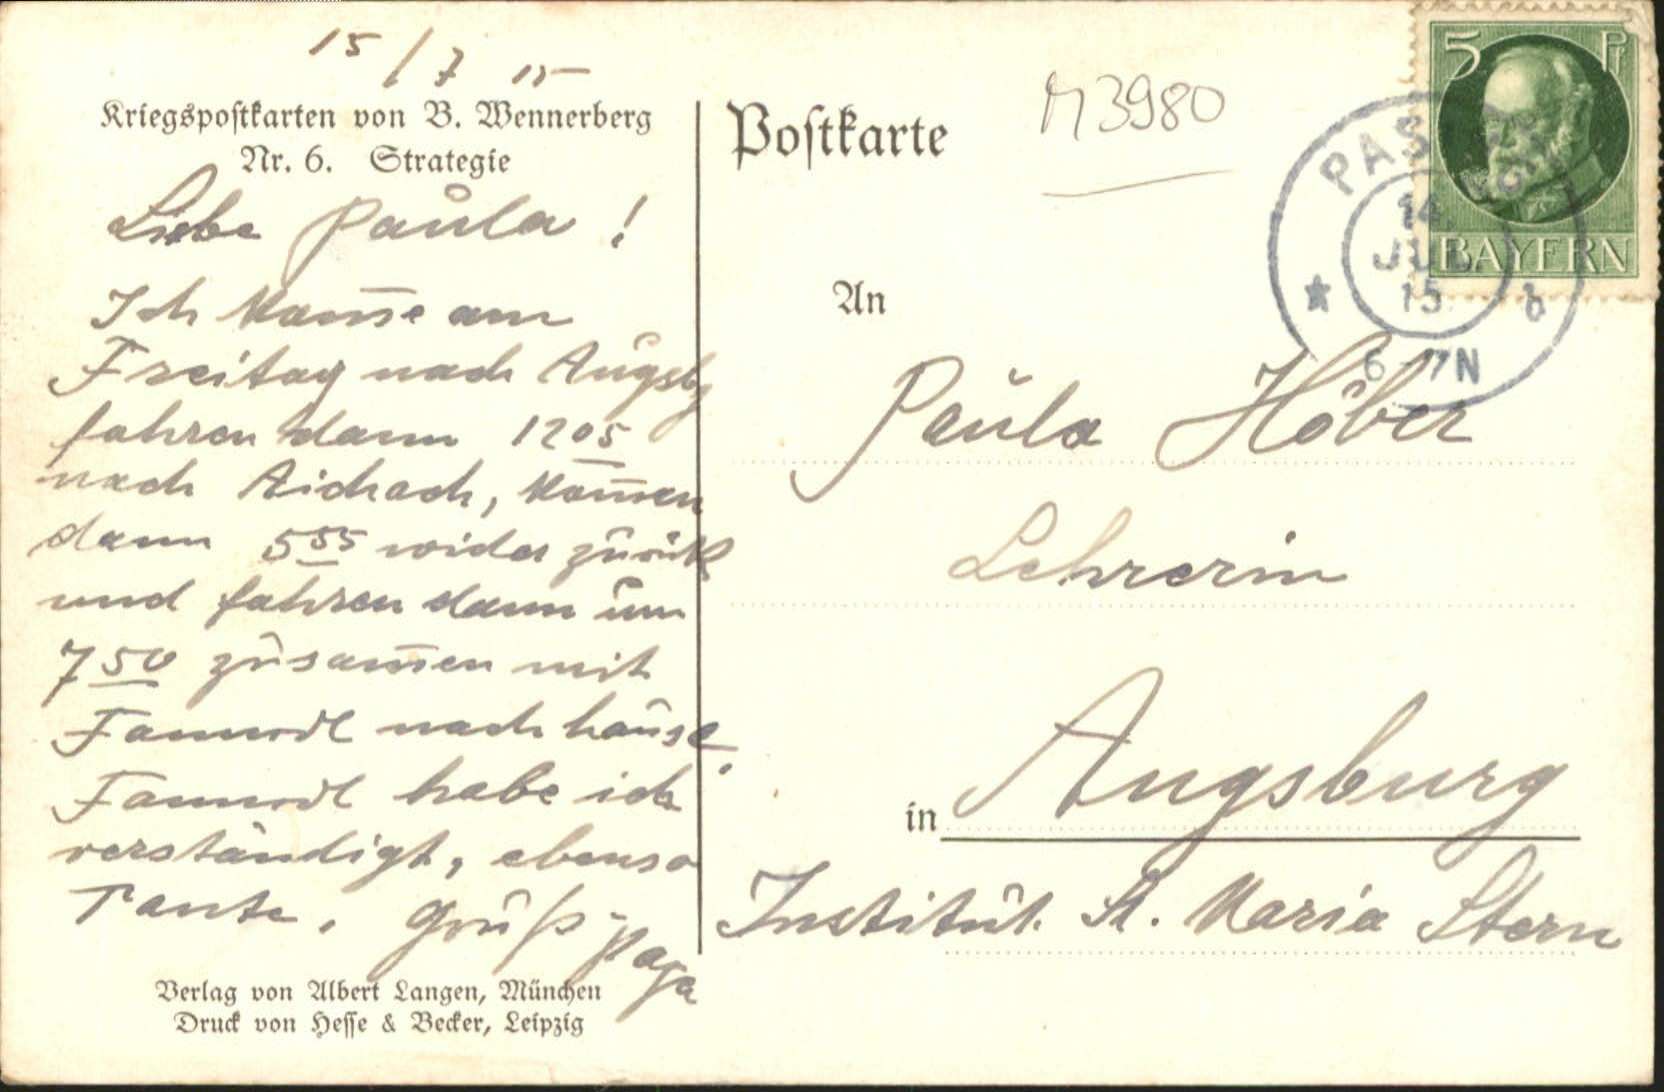 15/7 15
Kriegspostkarten von B. Wennerberg
Nr. 6. Strategie
Liebe Paula!
Ich kom̄e am
Freitag nach Augsbg
fahren dann 12 05
nach Aichach, kom̄en
dann 5 55 wider zurück
und fahren dann um
7 50 zusam̄en mit
nach hause.
habe ich
verständigt, ebenso
Tante. Gruß Papa
Verlag von Albert Langen, München
Druck von Hesse & Becker, Leipzig
Postkarte
M3980
5 Pf
BAYERN
PAS
14
JUL
15
b
6-7N
An
Paula Höber
Lehrerin
in Augsburg
Institut St. Maria Stern